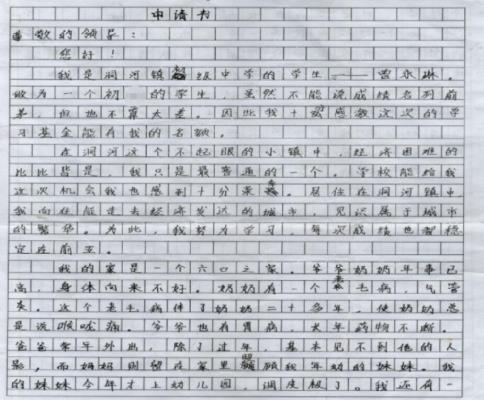 申请书
尊敬的领导：
您好！
我是洞河镇初级中学的学生——曾永琳。
做为一个初 的学生，虽然不能说成绩名列前
茅，但也不算太差。因此我十分感激这次的学
习基金能有我的名额。
在洞河这个不起眼的小镇中，经济困难的
比比皆是，我只是最普通的一个。学校能给我
这次机会我也感到十分荣幸。居住在洞河镇中
我向往能走去经济发达的城市，见识属于城市
的繁华。为此，我努力学习，每次成绩也都稳
定在前五。
我的家是一个六口之家。爷爷奶奶年事已
高，身体向来不好。奶奶有一个老毛病，气管
炎。这个老毛病伴了奶奶二十多年，使奶奶总
是说喉咙痛。爷爷也有胃病，长年药物不断。
爸爸常年外出，除了过年，基本见不到他的人
影，而妈妈则留在家里照顾我年幼的妹妹。我
的妹妹今年才上幼儿园，调皮极了。我还有一